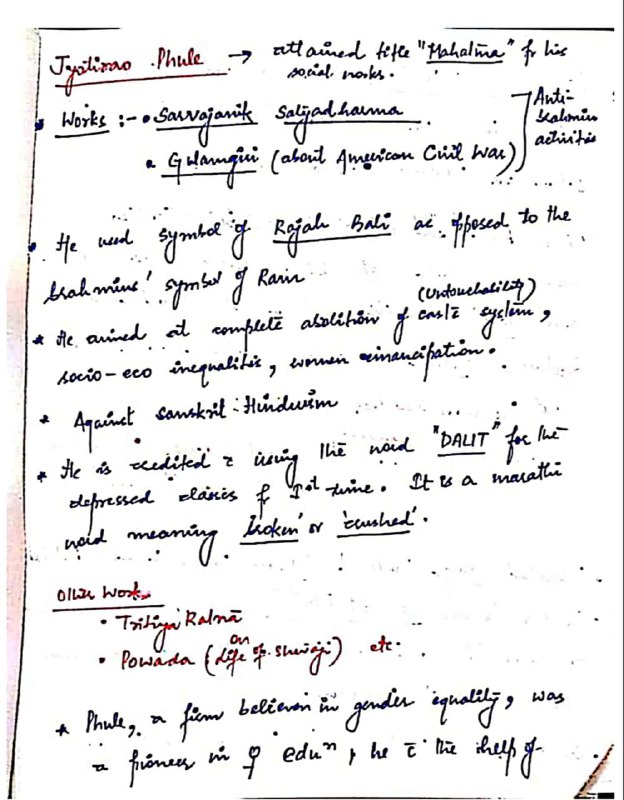 Jyotirao Phule → attained title "Mahatma" fr his
social works.
Works :- • Sarvajanik Satyadharma
• Gulamgiri (about American Civil War)
Anti-
brahmin
activities
• He used symbol of Rajah Bali as opposed to the
brahmins' symbol of Ram
(Untouchability)
* He aimed at complete abolition of caste system,
socio-eco inequalities, women emancipation.
* Against Sanskrit Hinduism
* He is credited c̄ using the word "DALIT" for the
depressed classes fr Ist time. It is a marathi
word meaning 'broken' or 'crushed'.
Other Works
• Tritiya Ratna
• Powada (on life of Shivaji) etc.
* Phule, a firm believer in gender equality, was
a pioneer in ♀ eduⁿ, he c̄ the help of